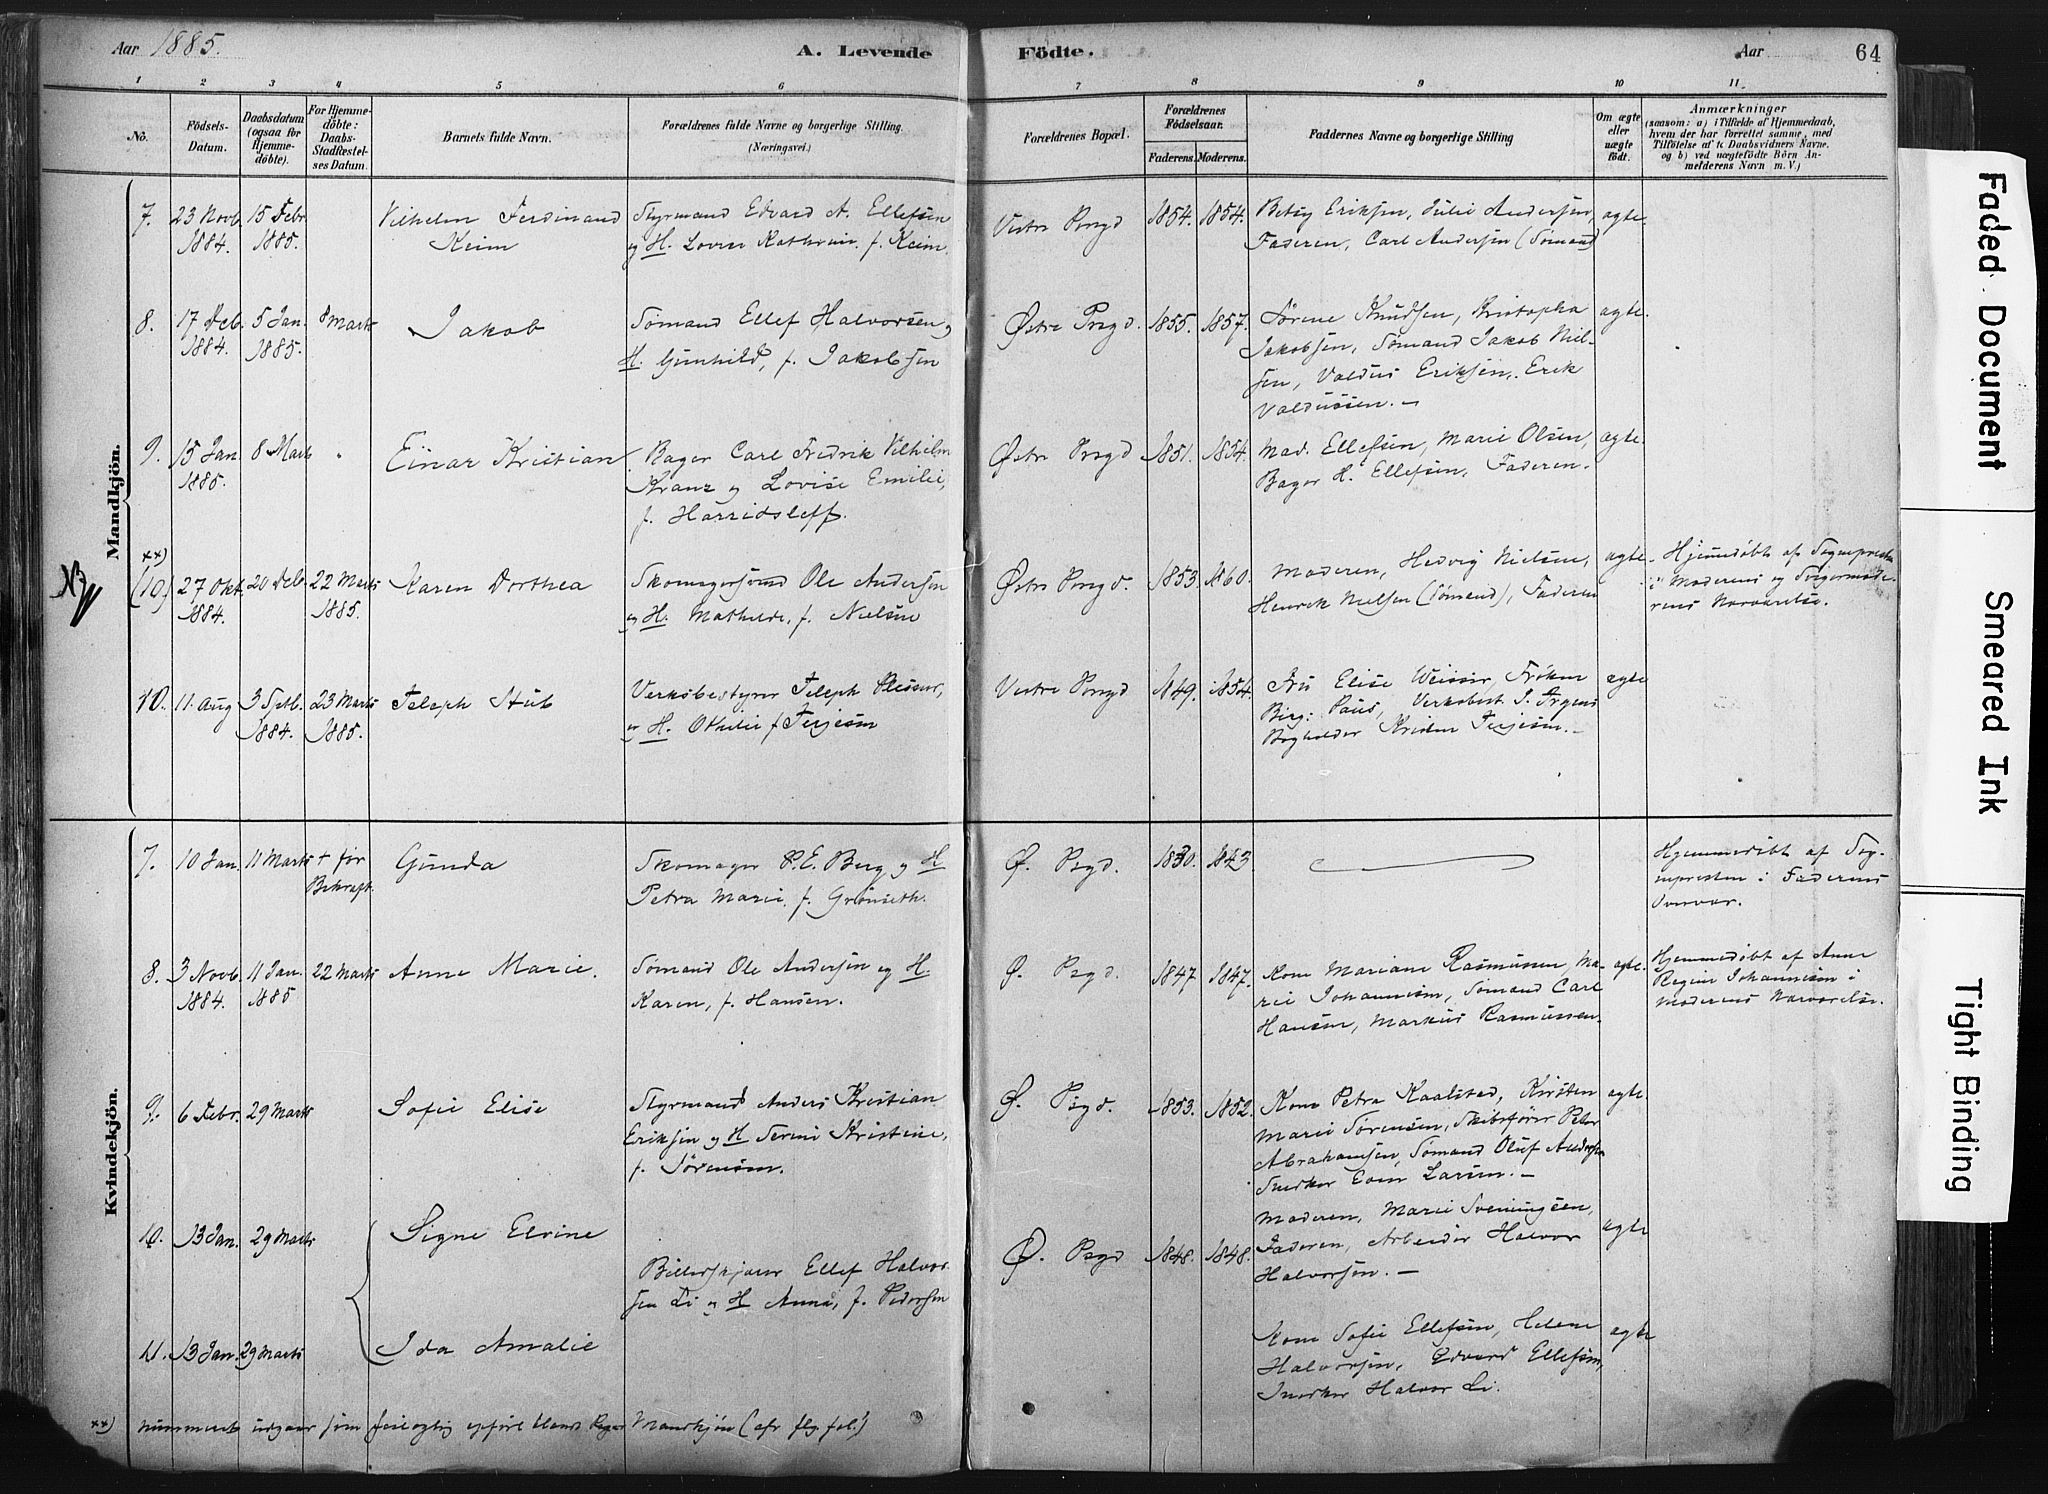 Aar 1885.
A. Levende
Födte.
Aar
64
1 2 3 4 5 6 7 8 9 10 11.
No.
Födsels-
Datum.
Daabsdatum
(ogsaa for
Hjemme-
döbte).
For Hjemme-
döbte:
Daabs-
Stadfæstel-
ses Datum.
Barnets fulde Navn.
Forældrenes fulde Navne og borgerlige Stilling.
(Næringsvei.)
Forældrenes Bopæl.
Forældrenes
Födselsaar.
Faderens. Moderens.
Faddernes Navne og borgerlige Stilling
Om ægte
eller
uægte
födt.
Anmærkninger
(saasom: a) i Tilfælde af Hjemmedaab,
hvem der har forrettet samme, med
Tilföielse af to Daabsvidners Navne.
og b) ved uægtefödte Börn An-
melderens Navn m. V.)
Mandkjön.
7.
23 Novb.
1884.
15 Febr
1885.
Vilhelm Ferdinand
Keim
Styrmand Edvard A. Ellefsen
og H. Lovise Kathrine f. Keim.
Vestre Porsgd
1854.
1854.
Betsy Eriksen, Julie Andersen
Faderen, Carl Andersen (Sømand)
ægte.
8.
17 Deb.
1884.
5 Jan.
1885.
8 Marts
Jakob
Sømand Ellef Halvorsen og
H. Gunhild, f. Jakobsen
Østre Prsgd.
1855.
1857.
Sørine Knudsen, Kristopha
Jakobsen, Sømand Jakob Niel-
sen, Valdus Eriksen, Erik
Valdussen. -
ægte.
9.
15 Jan.
1885.
8 Marts
Einar Kristian
Bager Carl Fredrik Vilhelm
Kranz og Lovise Emilie,
f. Harridsleff.
Østre Prsgd
1851.
1854.
Mad. Ellefsen, Marie Olsen,
Bager H. Ellefsen, Faderen.
ægte.
xx)
(10.)
27 Okt.
1884.
20 Deb.
22 Marts
1885.
Karen Dorthea
Skomagersvend Ole Andersen
og H. Mathilde, f. Nielsen
Østre Porsgd.
1853.
1860.
Moderen, Hedvig Nielsen,
Henrik Nielsen (Sømand), Faderen
ægte.
Hjemmedøbt af Sognepresten
i Moderens og Svigermode-
rens Nærværelse.
10.
11. Aug
3 Sptb.
1884.
23 Marts
1885.
Jeleph Stub
Verksbestyrer Jeleph
og H. Othilie f Terjesen
Vestre Porsgd
1849.
1854.
Fru Elise Weisser, Frøken
Birg. Paus, Verksbest J. Irgens
Bogholder Kristen Terjesen. -
ægte
Kvindekjön.
7.
10 Jan.
11 Marts
+ før
Bekræft.
Gunda
Skomager P. E. Berg og H
Petra Marie, f. Grønseth.
Ø. Psgd.
1830.
1843
Hjemmedøbt af Sog-
nepresten i Faderens
Overvær.
8.
3 Novb.
1884.
11 Jan.
1885
22 Marts
Anne Marie.
Sømand Ole Andersen og H.
Karen, f. Hansen.
Ø. Psgd.
1847
1847.
Kone Mariane Rasmussen, Ma-
rie Johannesen, Sømand Carl
Hansen, Markus Rasmussen.
ægte.
Hjemmedøbt af Anne
Regine Johannesen i
Moderens Nærværelse.
9.
6 Febr.
29 Marts
Sofie Elise
Styrmand Anders Kristian
Eriksen og H Serine Kristine,
f. Sørensen.
Ø. Psgd.
1853.
1852.
Kone Petra Kaalstad, Kirsten
Marie Sørensen, Skibsfører Peter
Abrahamsen, Sømand Oluf Andersen
Snedker Even Larsen. -
ægte.
10.
13 Jan.
29 Marts
Signe Elvine
Billedskjærer Ellef Halvor-
sen Li og H Anna, f. Pedersen
Ø. Psgd
1848.
1848.
Moderen, Marie Sveningsen,
Faderen, Arbeider Halvor
Halvorsen. -
ægte
11.
13 Jan.
29 Marts
Ida Amalie
Kone Sofie Ellefsen, Helene
Halvorsen, Edvard Ellefsen,
Snedker Halvor Li.
ægte
xx) nummeret udgaar som feilagtig opført blandt Mandkjøn (cfr flg fol.)
Faded Document
Smeared Ink
Tight Binding